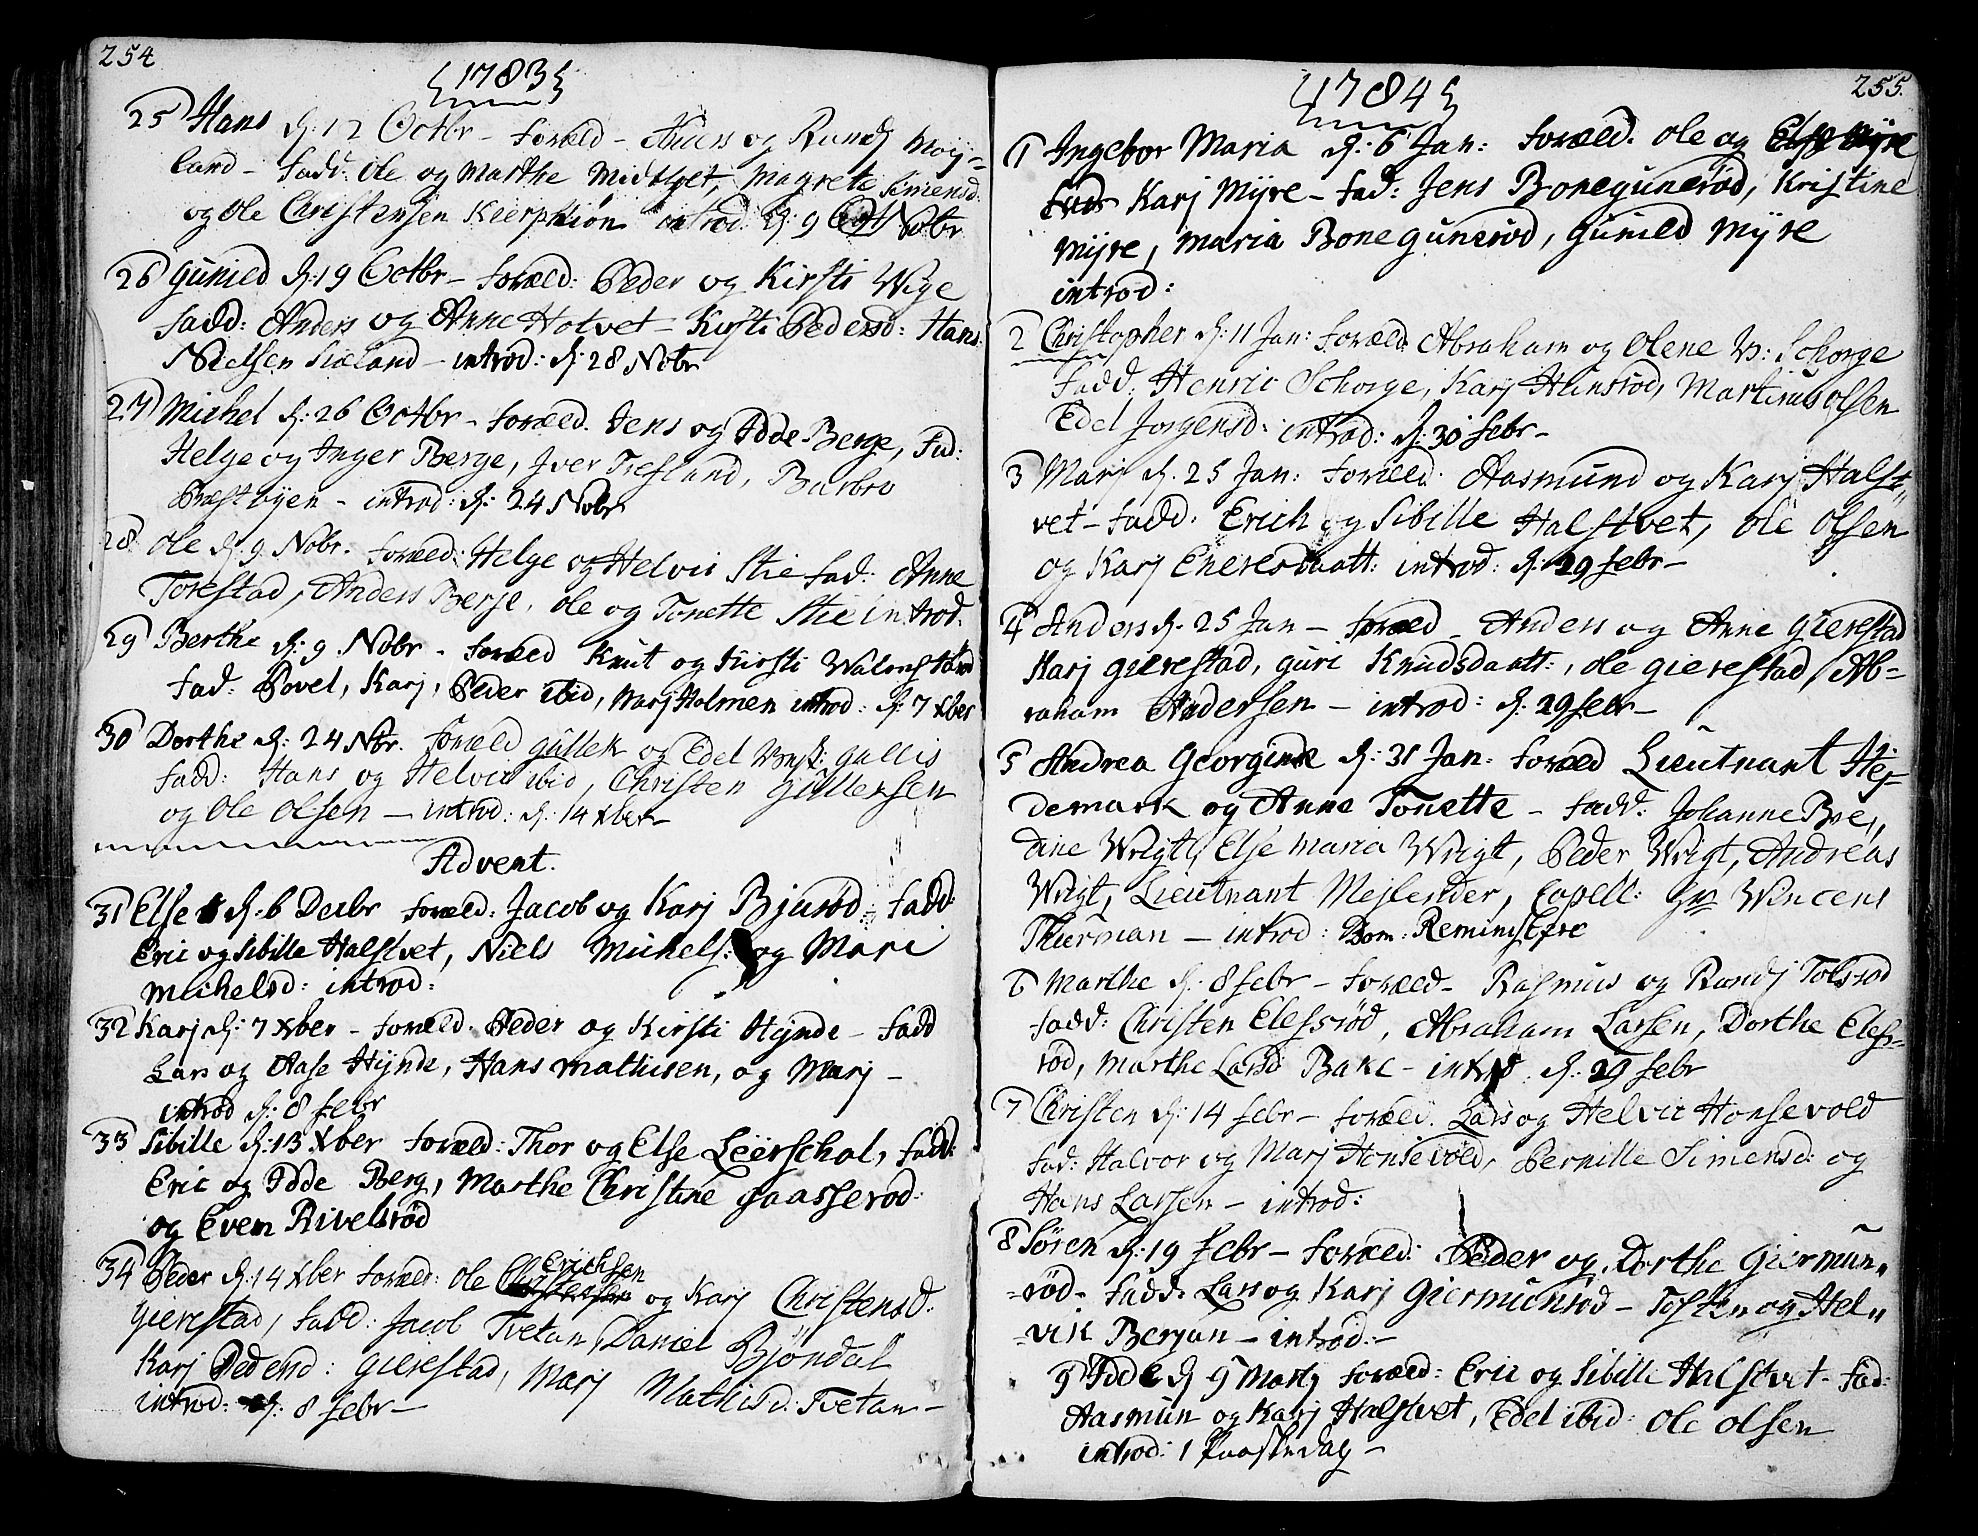 254
1783
25 Hans d: 12 Octbr - foræld - og Randj Møy=
land - fadd: Ole og Marthe Midtget, Magrete Simensd:
og Ole Christensen Kierphion introd: d: 9 Nobr
26 Gunild d: 19 Octbr - foræld: Peder og Kirsti Wige
fadd: Anders og Anne Hotvet - Kirsti Pedersd: Hans
Nielsen Siæland - introd: d: 28 Nobr
27 Michel d: 26 Octbr - foræld. Jens og Idde Berge, fad:
Helge og Inger Berge, Iver Tiesland, Barbro
Præstøyen - introd: d: 24 Nobr
28 Ole d. 9 Nobr. foræld: Helge og Helvic Stie fad: Anne
Torestad, Anders Berge, Ole og Tonette Stie introd.
29 Berthe d: 9 Nobr - foræld Knut og Kirsti
fad: Povel, Karj, Peder ibid, Marj Holmen introd: d: 7 Xber
30 Dorthe d: 24 Nbr. foræld Gullek og Edel Gullis
fadd: Hans og Helvic ibid, Christen Gullersen
og Ole Olsen - introd: d: 14 Xber -
Advent.
31 Else d: 6 Decbr foræld: Jacob og Karj Bjurød: fadd:
Eric og Sibille Halstvet, Niels Michels: og Mari
Michelsd: introd:
32 Karj d: 7 Xber - foræld: Peder og Kirsti Hynde - fadd
Lars og Aase Hynde, Hans Mathisen, og Marj -
introd d: 8 febr
33 Sibille d: 13 Xber foræld: Thor og Else Leerschol, fadd:
Eric og Idde Berg, Marthe Christine Gaasserød:
og Even Rivelsrød
34 Peder d: 14 Xber foræld: Ole Erichsen og Karj Christensd:
Gierestad, fadd: Jacob Tvetan, Daniel Bjøndal
Karj Pedersd: Gierestad, Marj Mathisd: Tvetan -
introd: d: 8 febr -
255.
1784
1 Ingebor Maria d: 6 Jan: foræld: Ole og Else Myre
Karj Myre - fad: Jens Bonegunerød, Kristine
Myre, Maria Bonegunerød, Gunild Myre
introd:
2 Christopher d: 11 Jan: foræld: Abraham og Olene v: Schorge
fadd: Henric Schorge, Karj Hansrod, Martinus Olsen
Edel Jorgensd: introd: d: 30 febr -
3 Marj d. 25 Jan: foræld. Aasmund og Karj Halst„
vet - fadd: Erich og Sibille Halstvet, Ole Olsen
og Karj Eneresdaatt: introd: d: 29 febr -
4 Anders d. 25 Jan - foræld - Anders og Anne Gierestad
Karj Gierestad, Guri Knudsdaatt:, Ole Gierestad, Ab=
raham Andersen - introd: d: 29 febr -
5 Andrea Georgine d: 31 Jan: foræld Lieutnant Hej=
demark og Anne Tonette - fadd: Johanne Bre„
dine Wrigt, Else Maria Wrigt, Peder Wrigt, Andreas
Wrigt, Lieutnant Mejlender, Capell: Hr Wincens
Thurman - introd: Dom: Reminiscere
6 Marthe d. 8 febr - foræld - Rasmus og Randj Tolsrød
fadd: Christen Elessrød, Abraham Larsen, Dorthe Eless=
rød, Marthe Larsd Bake - introd d: 29 febr
7 Christen d: 14 febr - foræld. Lars og Helvic Honsevold
fad: Halvor og Marj Honsevold, Pernille Simensd: og
Hans Larsen - introd:
8 Søren d: 19 febr - foræld: Peder og Dorthe Giermun„
=rød - fadd: Lars og Karj Giermundsrød - Tosten og Hel„
=vik Berjan - introd: -
9 Idde d 9 Marty foræld: Eric og Sibille Halstvet - fad:
Aasmun og Karj Halstvet, Edel ibid: Ole Olsen
introd: 1 Paaskedag -